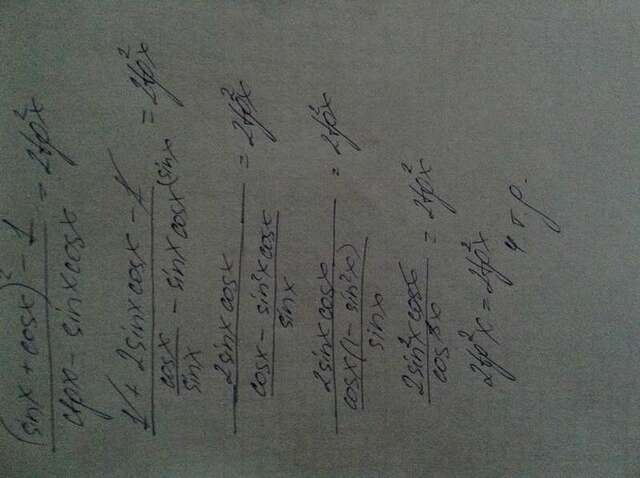 (sinx + cosx)² - 1 / ctgx - sinxcosx = 2tg²x
1 + 2sinxcosx - 1 / cosx/sinx - sinxcosx(sinx = 2tg²x
2sinxcosx / cosx - sin²xcosx / sinx = 2tg²x
2sinxcosx / cosx(1 - sin²x) / sinx = 2tg²x
2sin²xcosx / cos³x = 2tg²x
2tg²x = 2tg²x